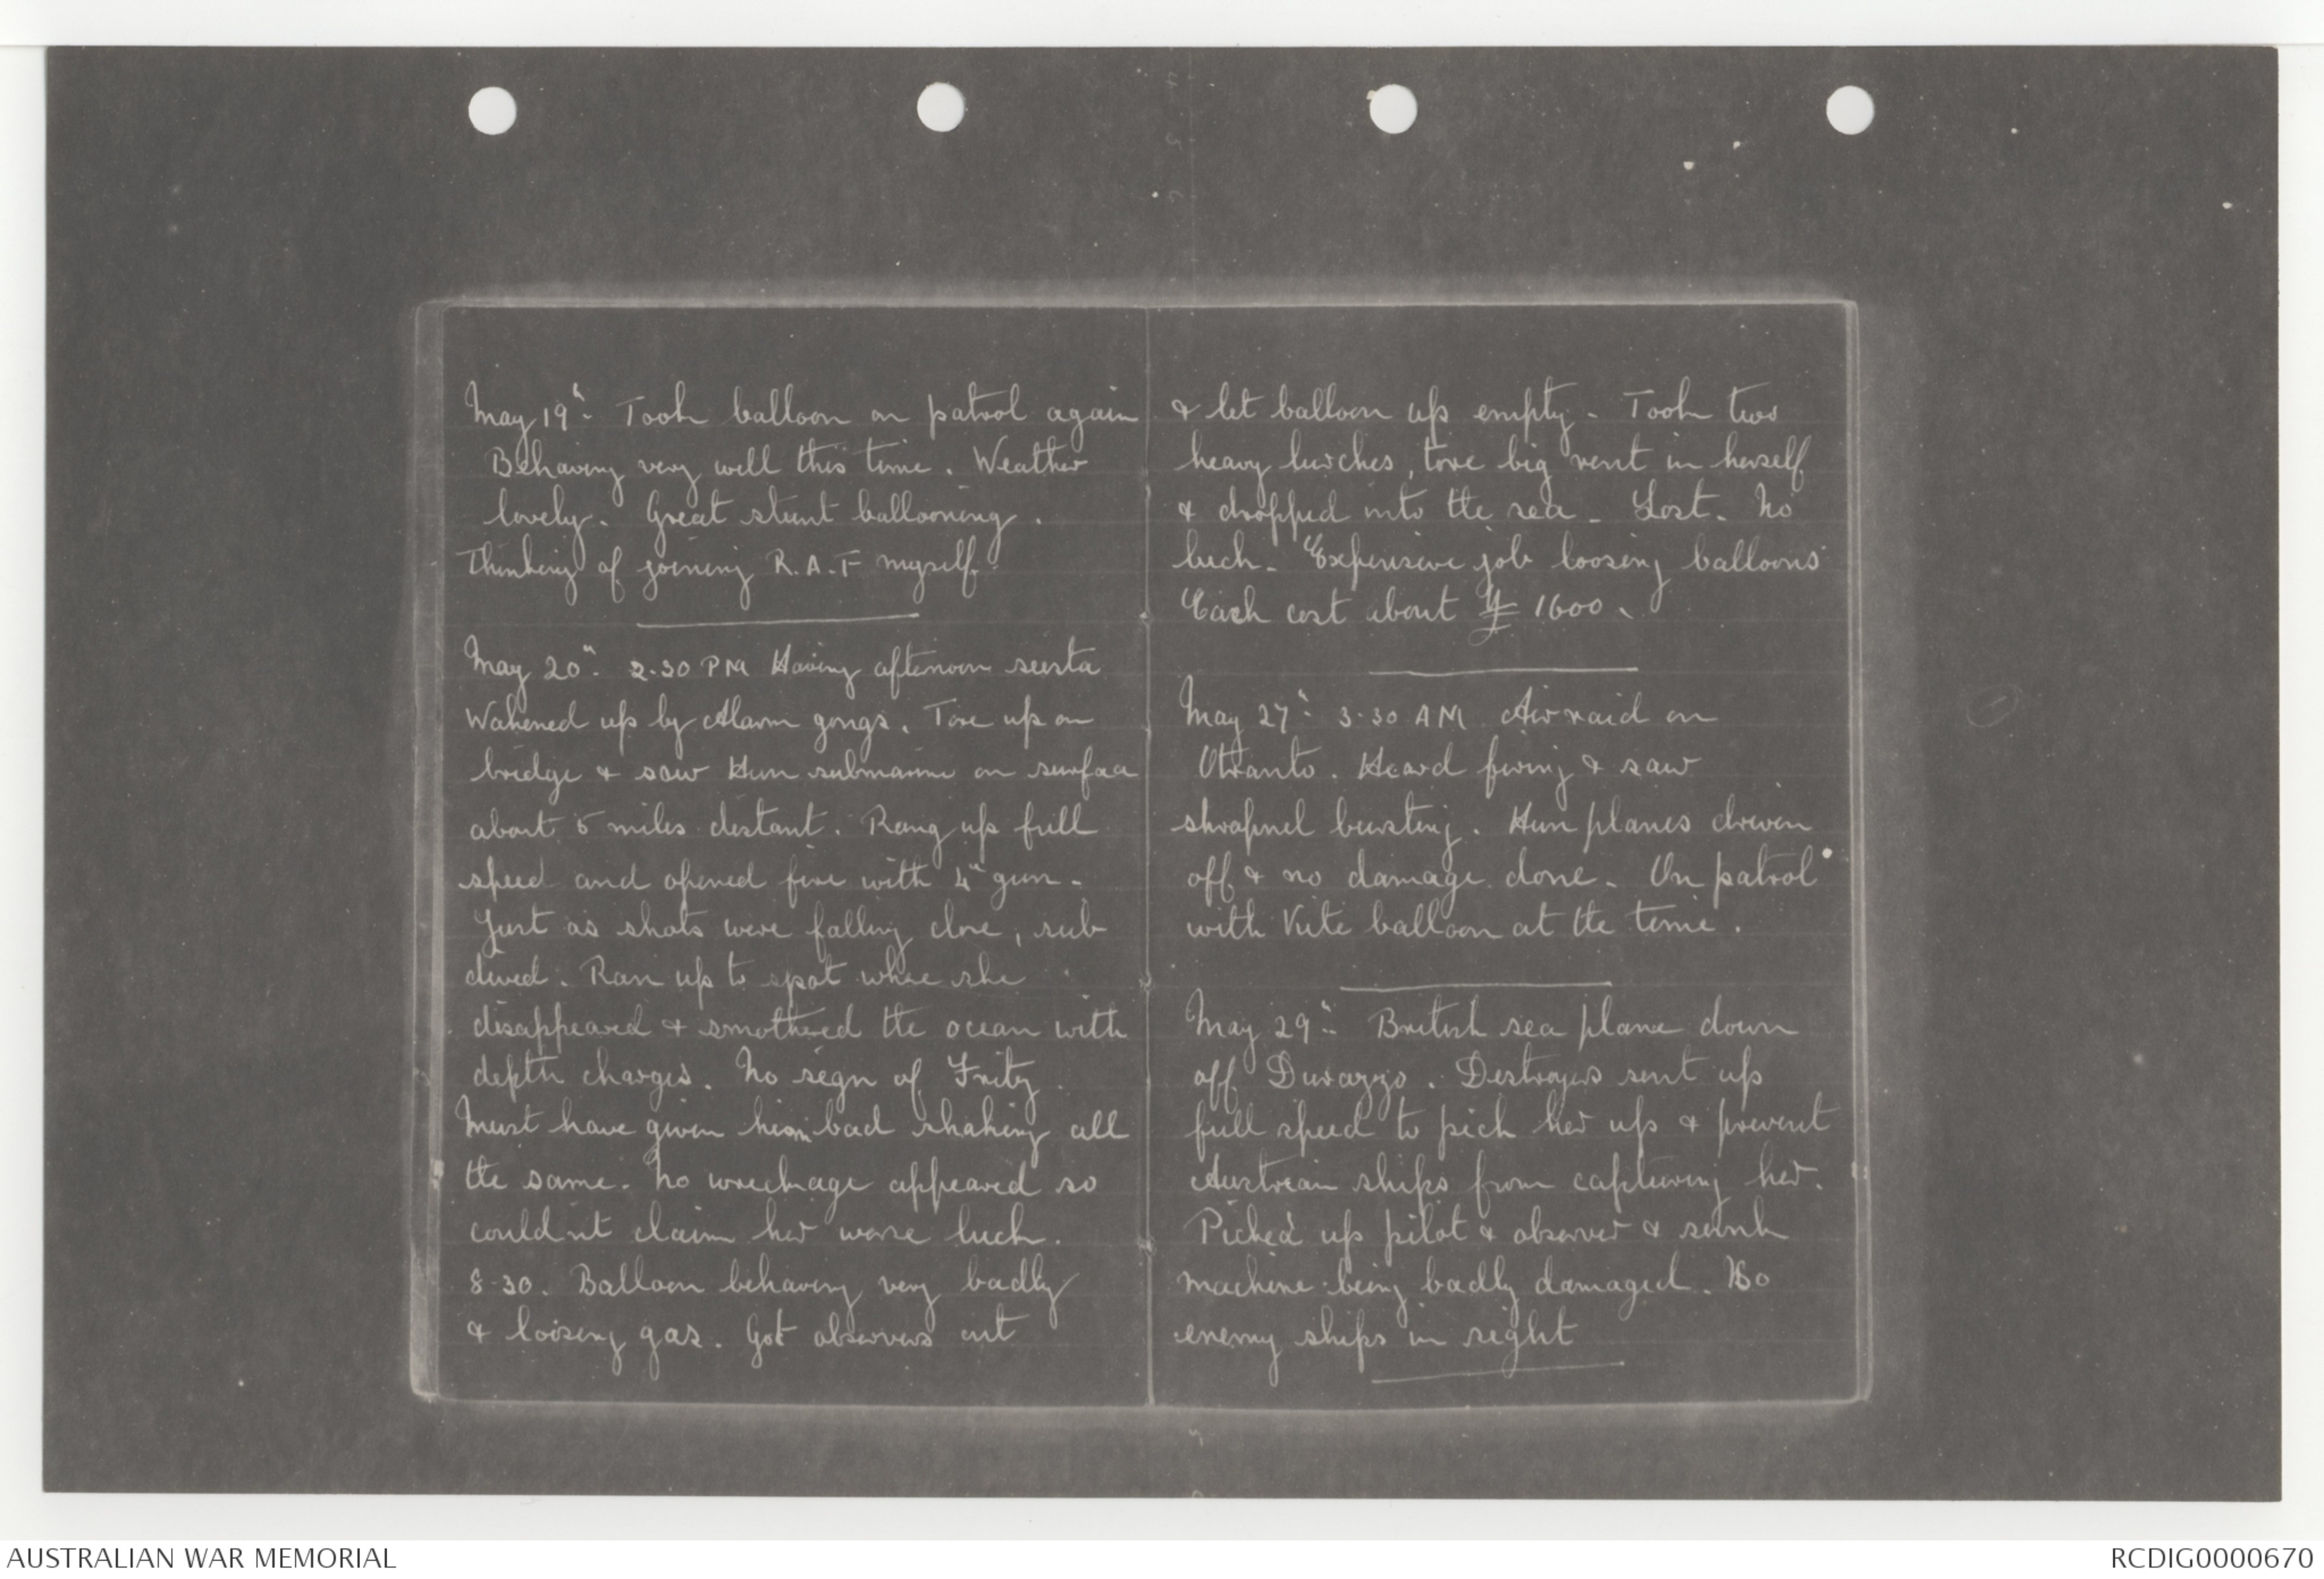 May 19th. Took balloon on patrol again
Behaving very well this time. Weather
lovely. Great stunt ballooning.
Thinking of joining R.A.F myself.
May 20th. 2.30 PM Having afternoon siesta
Wakened up by Alarm gongs. Tore up on
bridge & saw Hun submarine on surface
about 5 miles distant. Rang up full
speed and opened fire with 4" gun.
Just as shots were falling close, sub
dived. Ran up to spot where she
disappeared & smothered the ocean with
depth charges. No sign of Fritz.
Must have given him bad shaking all
the same. No wreckage appeared so
couldn't claim her worse luck.
8-30. Balloon behaving very badly
& loosing gas. Got observers out
& let balloon up empty. Took two
heavy lurches, tore big rent in herself
& dropped into the sea. Lost. No
luck. Expensive job loosing balloons
Each cost about £1600.
May 27th. 3-30 AM. Air raid on
Otranto. Heard firing & saw
shrapnel bursting. Hun planes driven
off & no damage done. On patrol
with Kite balloon at the time.
May 29th. British sea plane down
off Durazzo. Destroyers sent up
full speed to pick her up & prevent
Austrian ships from capturing her.
Picked up pilot & observer & sunk
machine being badly damaged. No
enemy ships in sight
AUSTRALIAN WAR MEMORIAL
RCDIG0000670